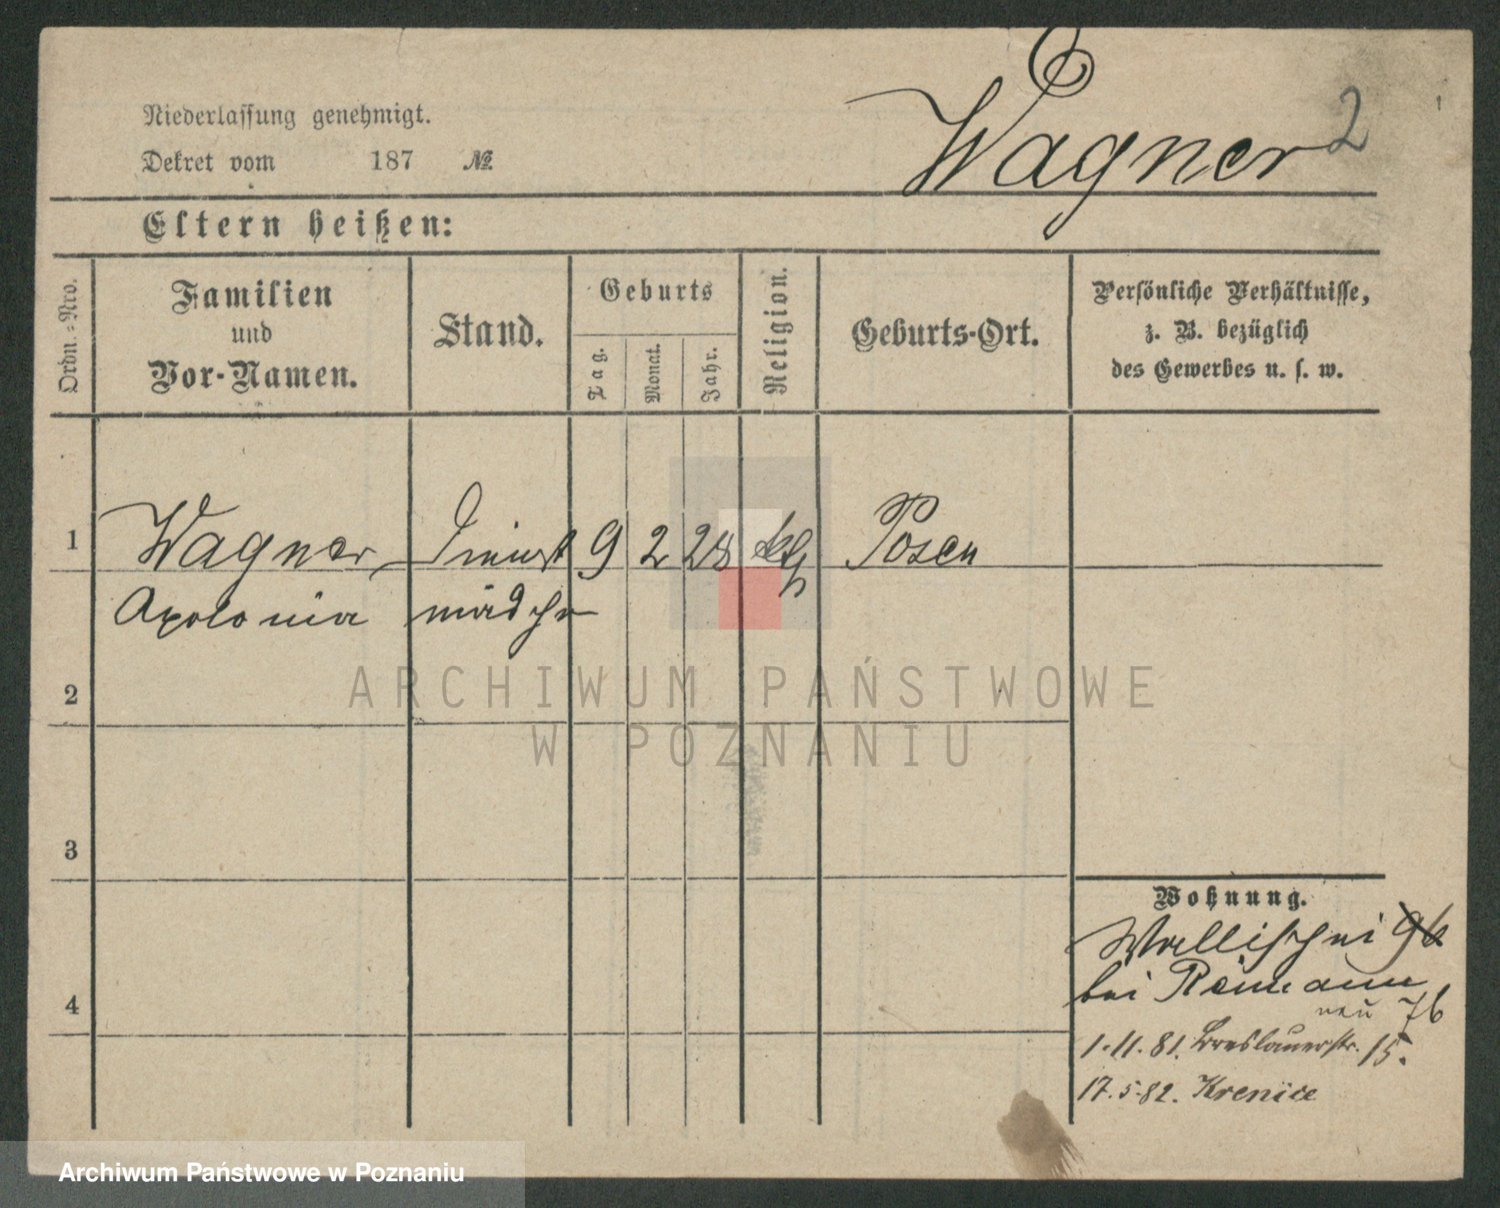 Wagner 2
Niederlassung genehmigt.
Dekret vom 187 №
Eltern heißen:
Ordn.=Nro.
Familien
und
Vor-Namen.
Stand.
Geburts
Tag.
Monat.
Jahr.
Religion.
Geburts-Ort.
Persönliche Verhältnisse,
z. B. bezüglich
des Gewerbes u. s. w.
1 Wagner Dienst 9 2 28 kth Posen
Apolonia mädchen
2
ARCHIWUM PAŃSTWOWE
W POZNANIU
3
Wohnung.
Wallischei
bei Reimann
4
neu 76
1.11.81. Breslauerstr. 15.
17.5.82.
Archiwum Państwowe w Poznaniu